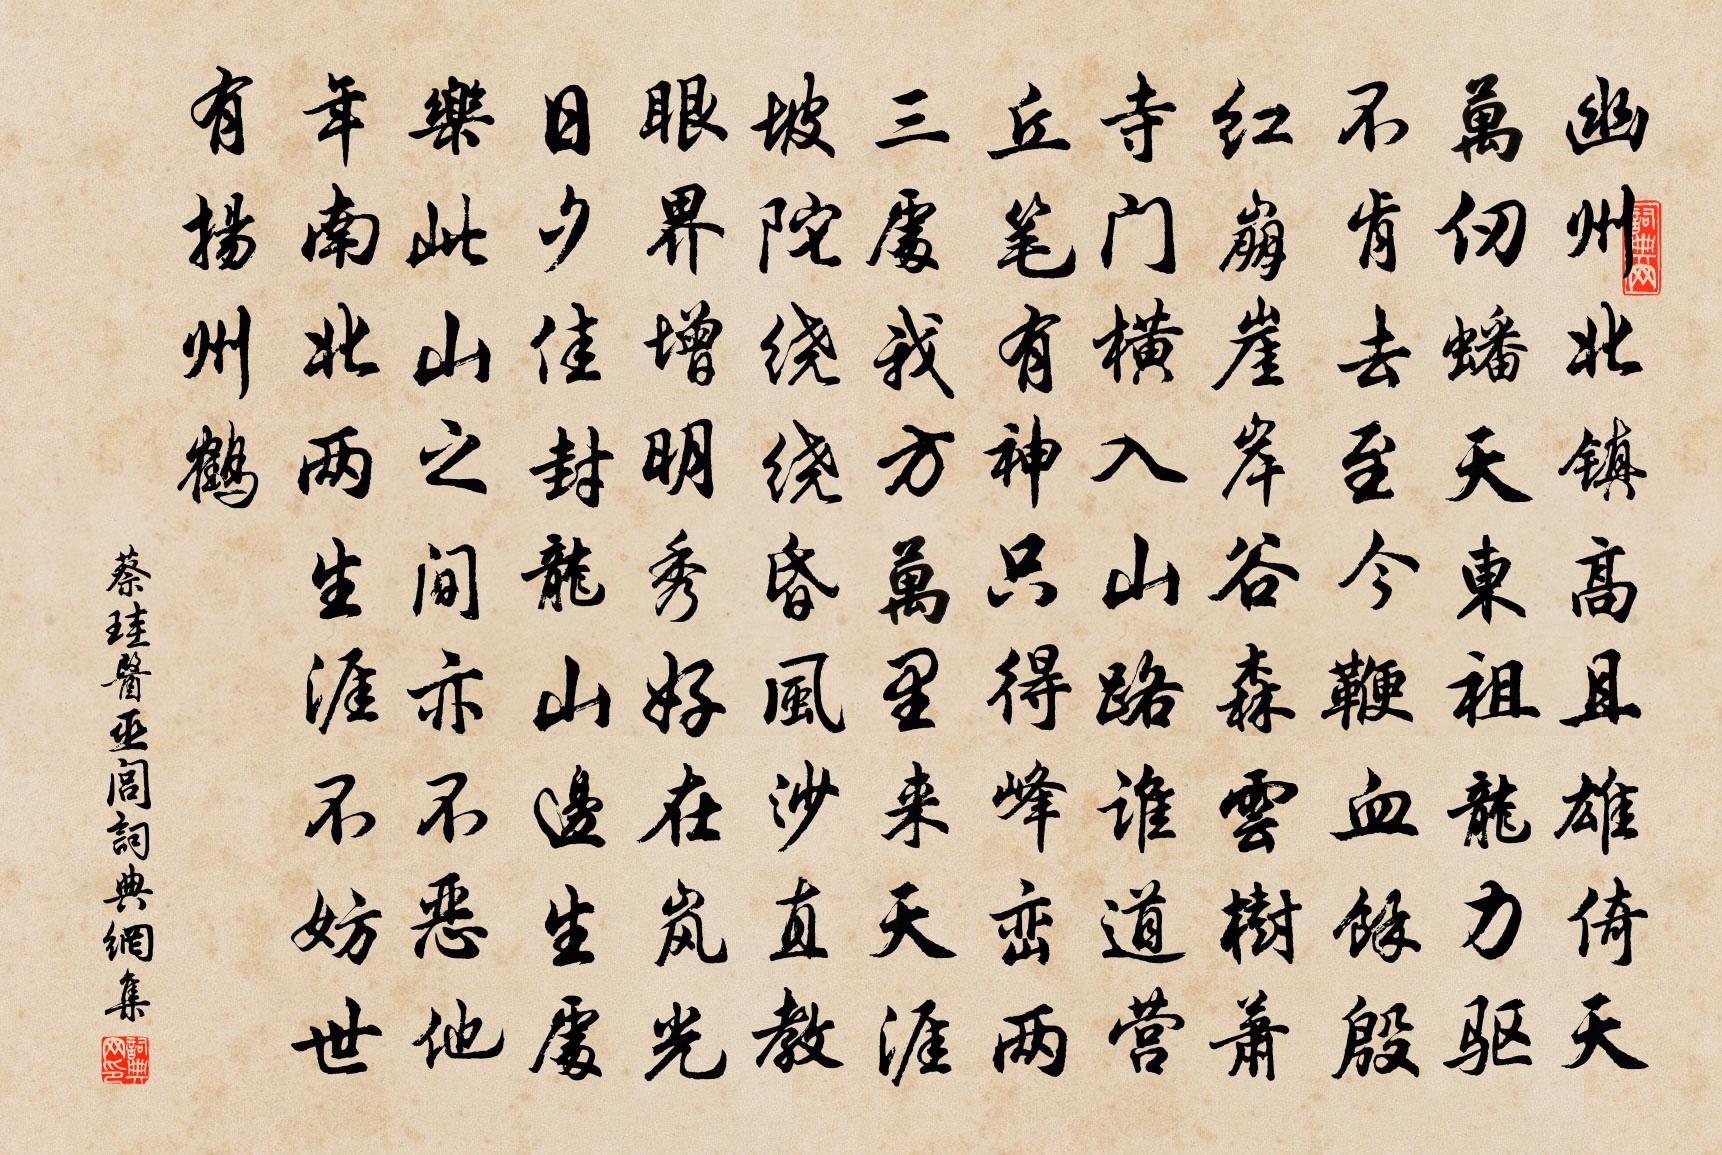 幽州北镇高且雄倚天
萬仞蟠天東祖龍力驱
不肯去至今鞭血馀殷
红崩崖岸谷森雲樹萧
寺门横入山路谁道营
丘笔有神只得峰峦两
三處我方萬里来天涯
坡陀绕绕昏風沙直教
眼界增明秀好在岚光
日夕佳封龍山邊生處
樂此山之间亦不恶他
年南北两生涯不妨世
有揚州鶴
蔡珪醫巫閭詞典網集
詞典网
詞典网印